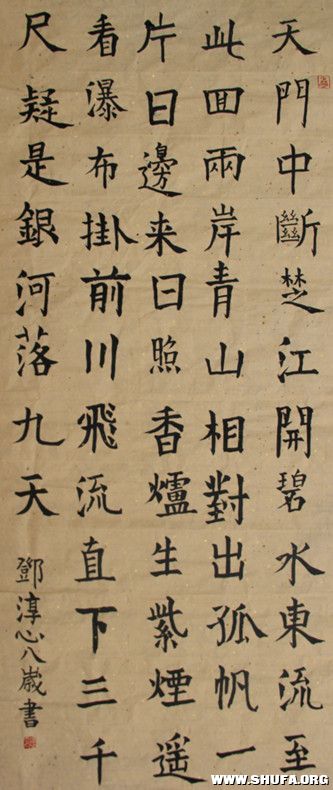 天門中斷楚江開碧水東流至
此回兩岸青山相對出孤帆一
片日邊来日照香爐生紫煙遥
看瀑布掛前川飛流直下三千
尺疑是銀河落九天
鄧淳心八歲書
WWW.SHUFA.ORG